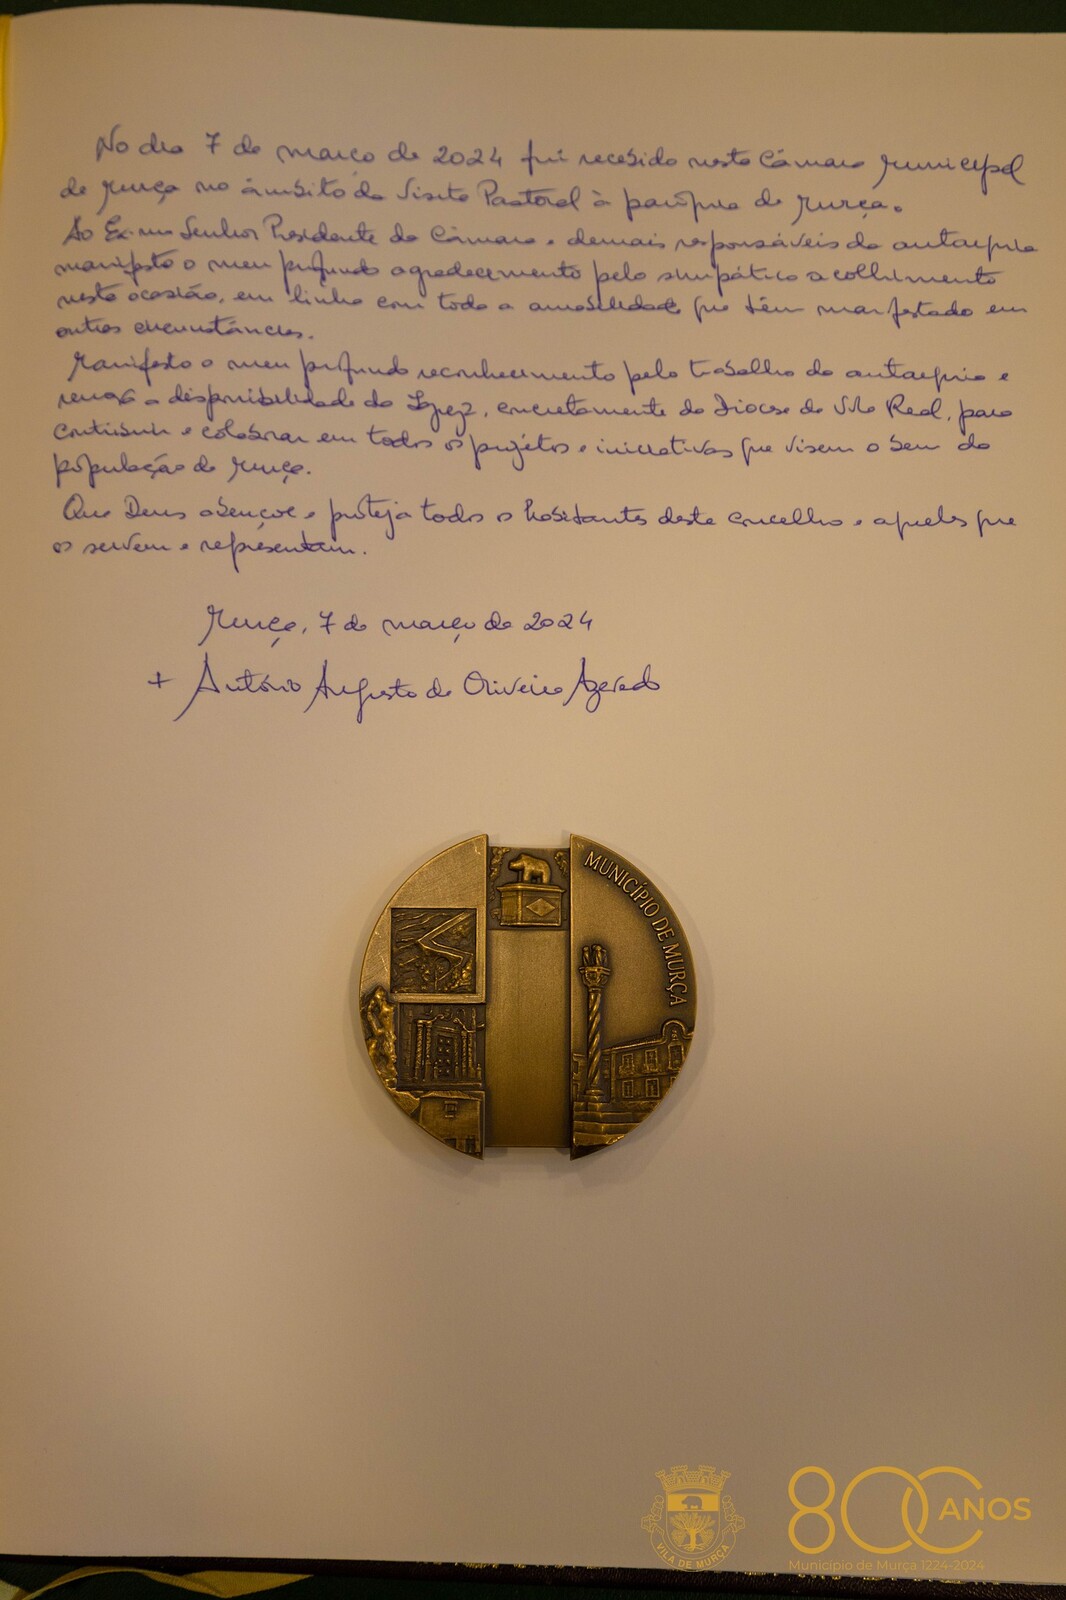 No dia 7 de março de 2024 fui recebido nesta Câmara Municipal
de Murça no âmbito da Visita Pastoral à paróquia de Murça.
Ao Ex.mo Senhor Presidente da Câmara e demais responsáveis da autarquia
manifesto o meu profundo agradecimento pelo simpático acolhimento
nesta ocasião, em linha com toda a amabilidade que têm manifestado em
outras circunstâncias.
Manifesto o meu profundo reconhecimento pelo trabalho da autarquia e
renovo a disponibilidade da Igreja, concretamente da Diocese de Vila Real, para
contribuir e colaborar em todos os projetos e iniciativas que visem o bem da
população de Murça.
Que Deus abençoe e proteja todos os habitantes deste concelho e aqueles que
os servem e representam.
Murça, 7 de março de 2024
+ António Augusto de Oliveira Azevedo
MUNICÍPIO DE MURÇA
VILA DE MURÇA
800 ANOS
Município de Murça 1224-2024